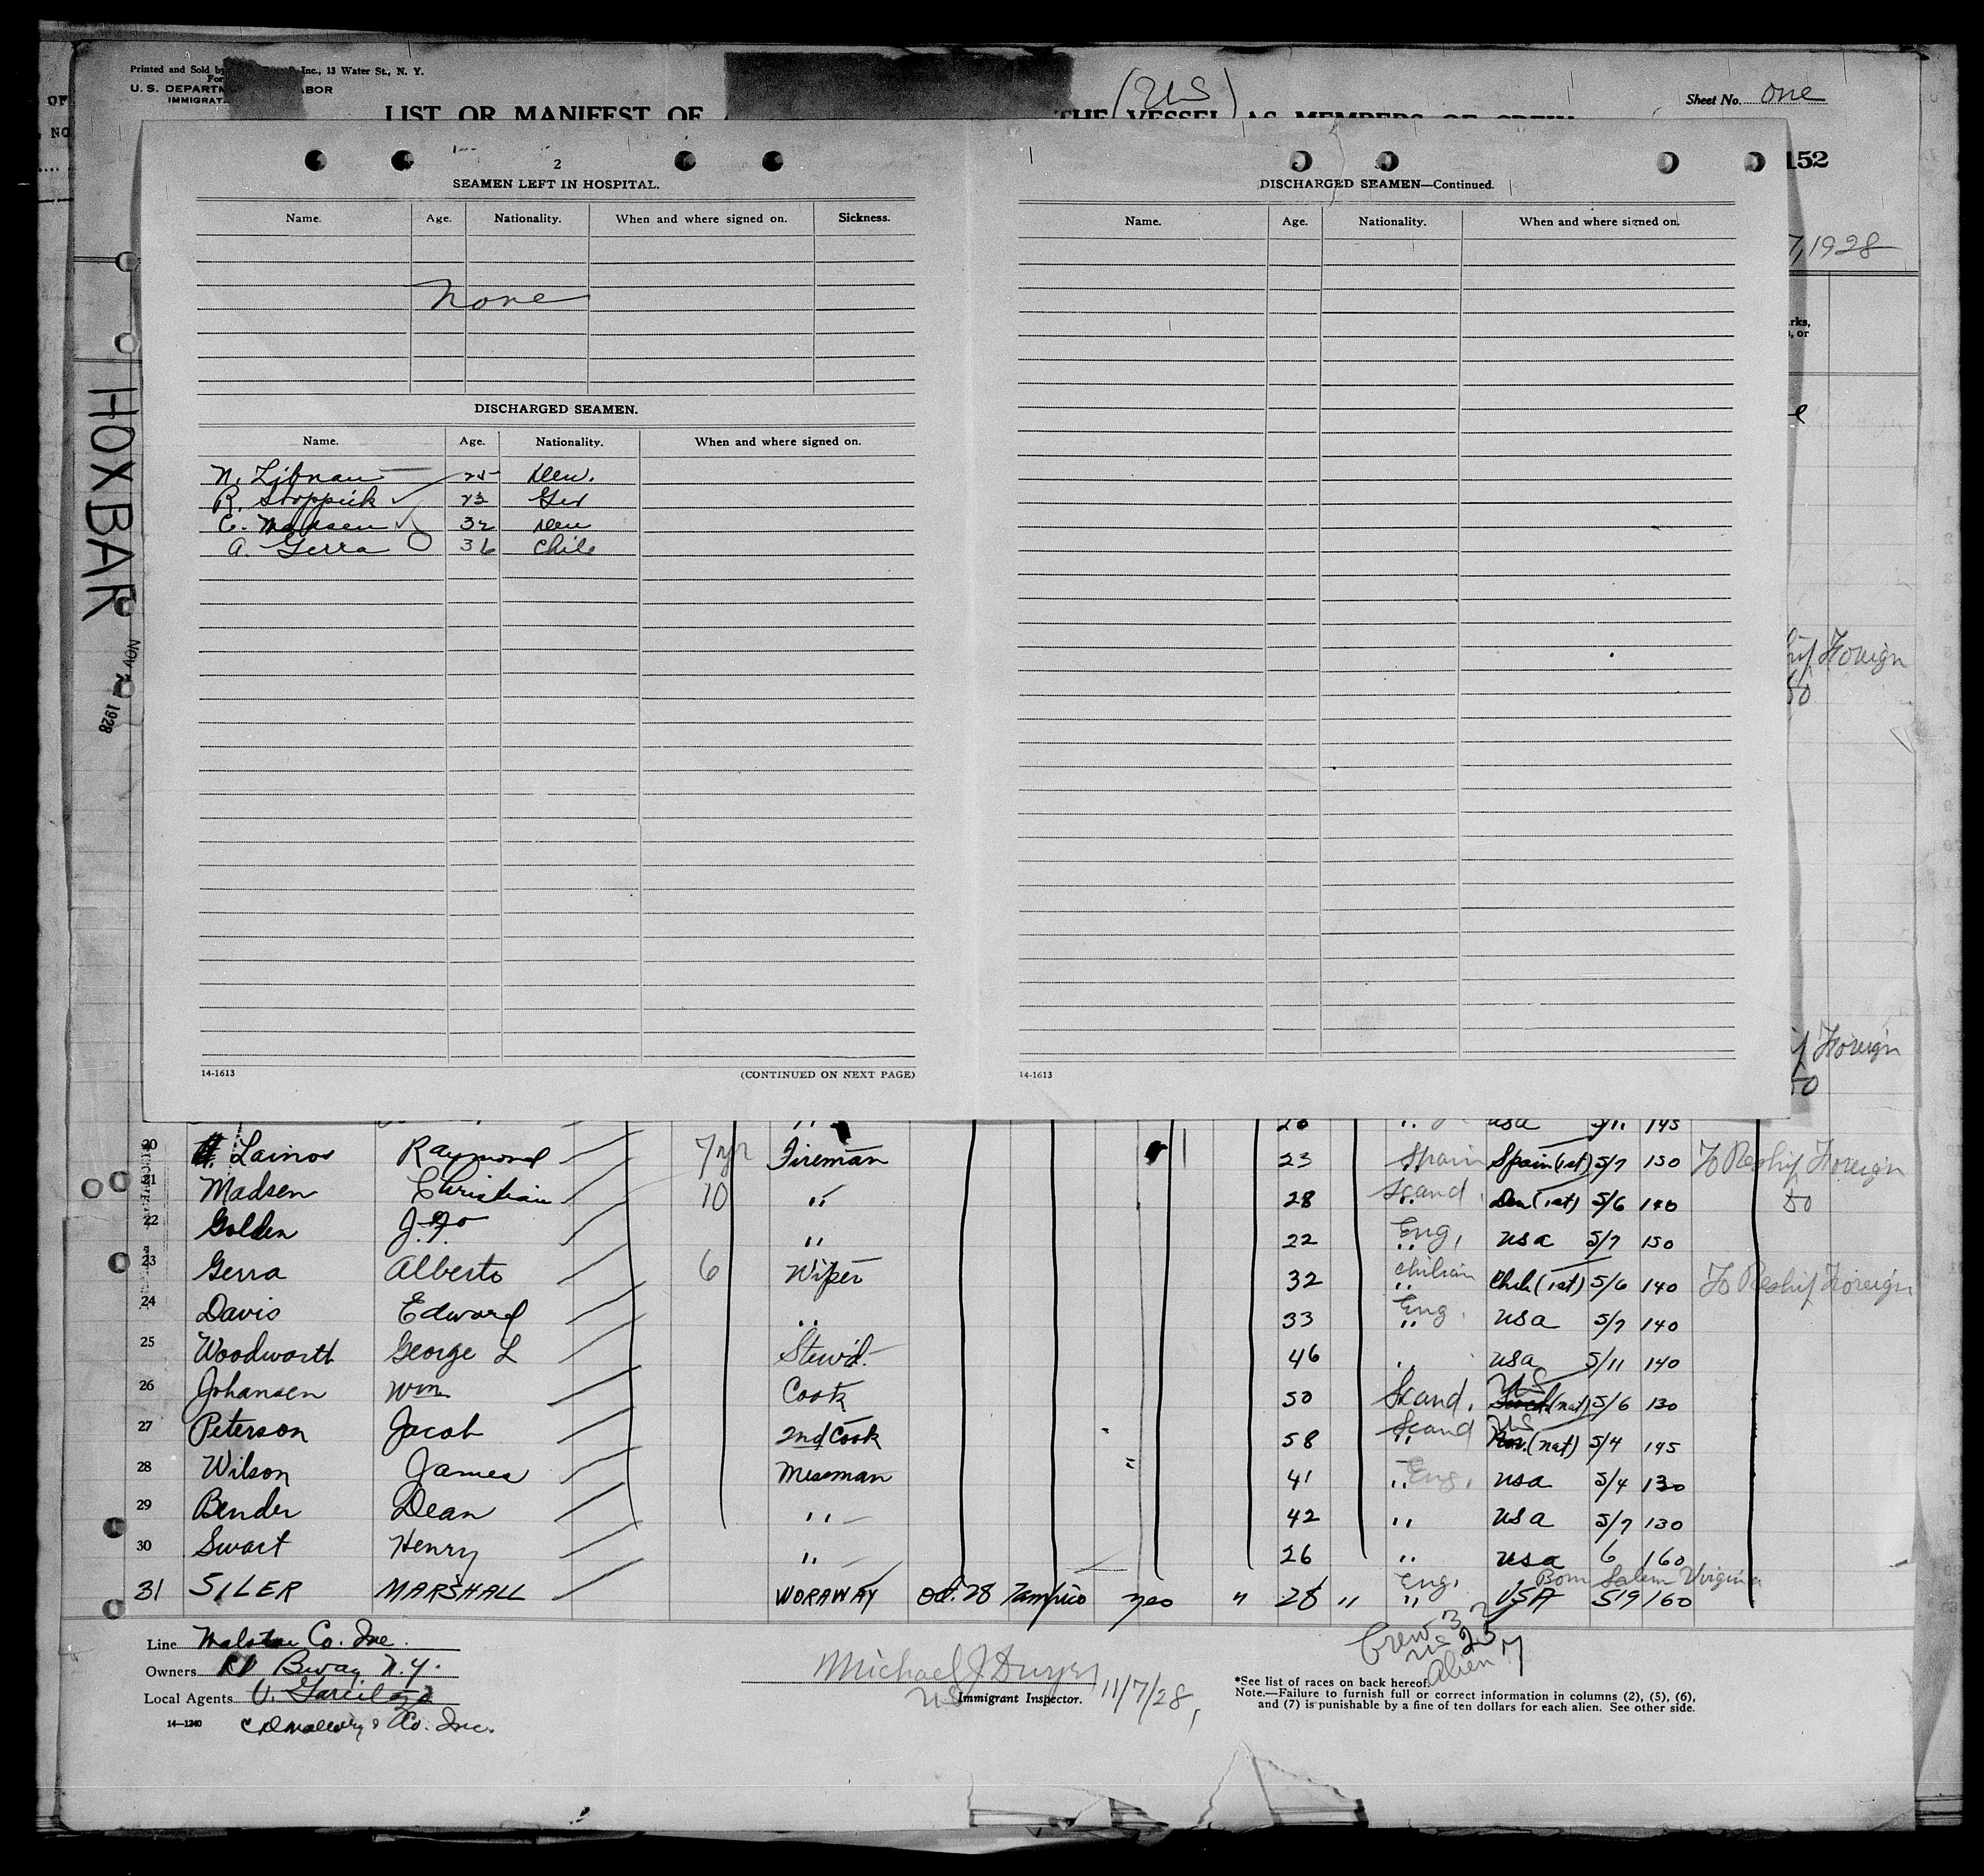 Printed and Sold by Inc., 13 Water St., N. Y.
U. S. DEPARTM ABOR
IMMIGRAT
LIST OR MANIFEST OF THE VESSEL AS MEMBERS OF CREW
(US)
Sheet No. one
152
7, 1928
HOXBAR
NOV 1928
2
SEAMEN LEFT IN HOSPITAL.
Name. Age. Nationality. When and where signed on. Sickness.
None
DISCHARGED SEAMEN.
Name. Age. Nationality. When and where signed on.
N. 25 Den.
R. Stoppick 23 Ger
C. Madsen 32 Den
A. Gerra 36 Chile
14-1613 (CONTINUED ON NEXT PAGE)
DISCHARGED SEAMEN—Continued.
Name. Age. Nationality. When and where signed on.
14-1613
rks,
, or
Foreign
Foreign
usa 5/11 145
20 Lainos Raymond 7 yr Fireman 23 Spain Spain (1st) 5/7 150 To Reship Foreign
21 Madsen Christian 10 " 28 Scand. Den (1st) 5/6 140 Do
22 Golden " 22 Eng. usa 5/7 150
23 Gerra Alberto 6 Wiper 32 Chilian Chile (1st) 5/6 140 To Reship Foreign
24 Davis Edward " 33 Eng. usa 5/7 140
25 Woodworth George L Stew'd. 46 " usa 5/11 140
26 Johansen Wm Cook 50 Scand. US (nat) 5/6 130
27 Peterson Jacob 2nd Cook 58 Scand US Nor. (nat) 5/4 145
28 Wilson James Messman 41 " Eng. usa 5/4 130
29 Bender Dean " 42 " usa 5/7 130
30 Swart Henry " 26 " usa 6 160
Born Salem Virginia
31 SILER MARSHALL WORAWAY Oct. 28 Tampico yes " 28 " Eng. " USA 5'9 160
Crew 32
US 25
Alien 7
Line Co. Inc.
Owners Bway N.Y.
Local Agents
14—1240 Co. Inc.
Michael J Dwyer 11/7/28,
US Immigrant Inspector.
*See list of races on back hereof.
Note.—Failure to furnish full or correct information in columns (2), (5), (6),
and (7) is punishable by a fine of ten dollars for each alien. See other side.